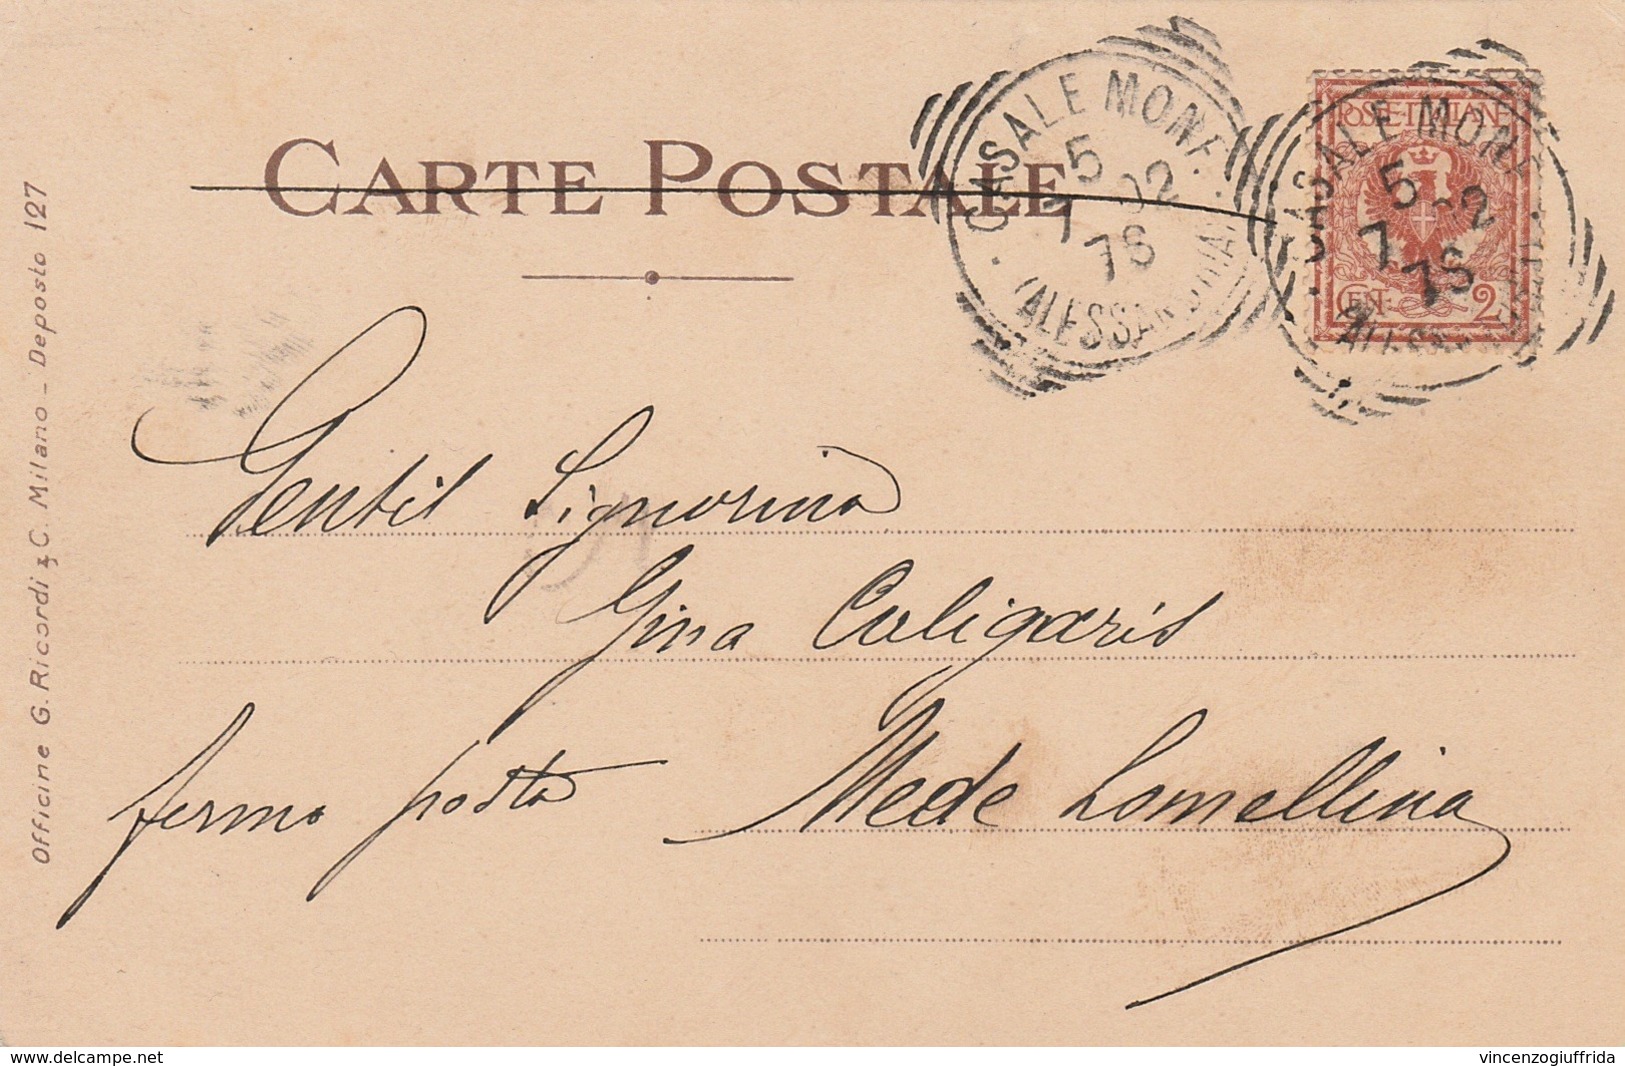 CARTE POSTALE
CASALE MONF.
5
7 02
7S
(ALESSANDRIA)
POSTE ITALIANE
CENT. 2
CASALE MONF.
5
7 02
7S
Gentil Signorina
Gina Caligaris
fermo posta Mede Lomellina
Officine G. Ricordi & C. Milano - Deposto 127
www.delcampe.net
vincenzogiuffrida